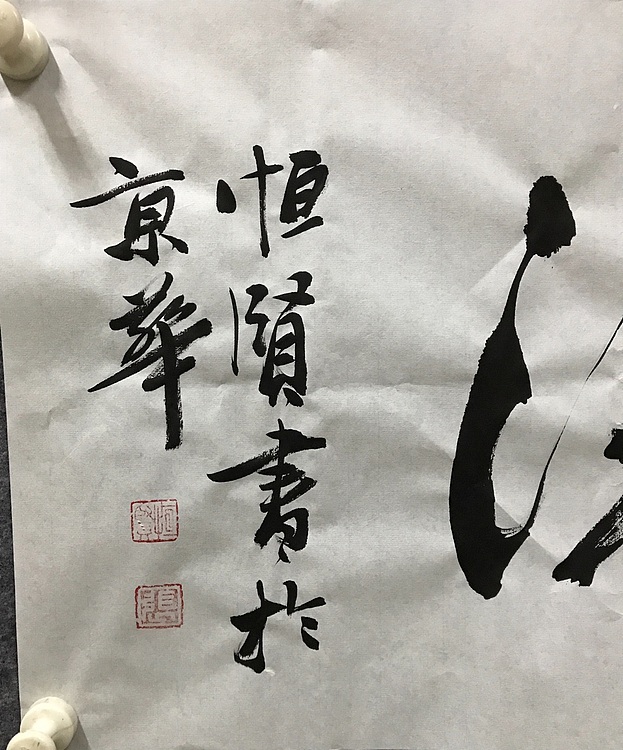 恒賢書於
京華